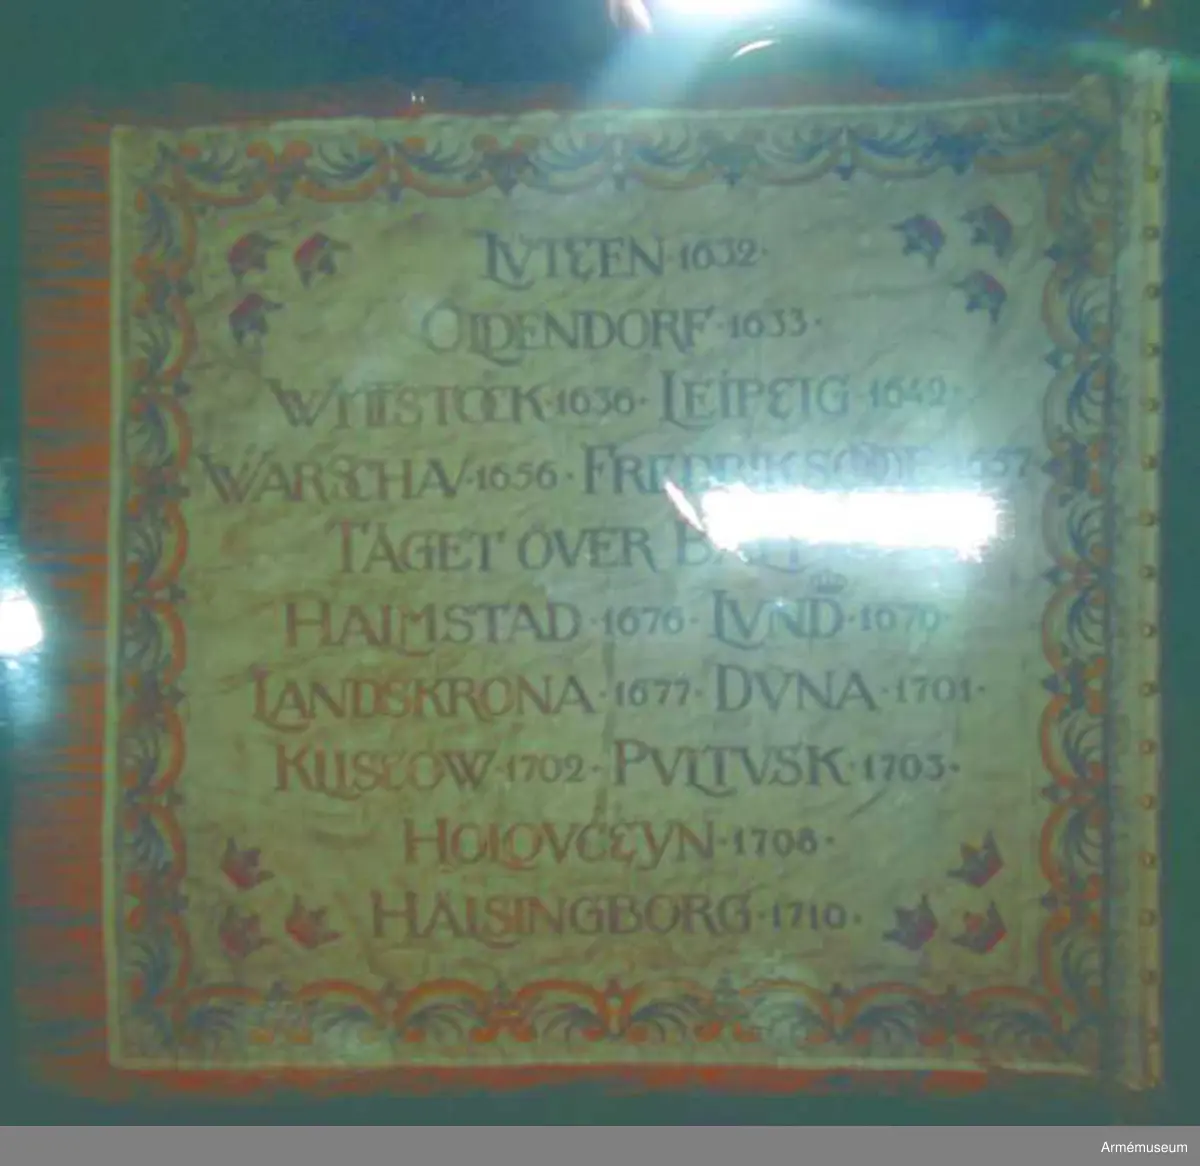 LVTZEN · 1632 ·
OLDENDORF · 1633 ·
WITTSTOCK · 1636 · LEIPZIG · 1642 ·
WARSCHAV · 1656 ·
TÅGET ÖVER
HALMSTAD · 1676 · LVND · 1676 ·
LANDSKRONA · 1677 · DVNA · 1701 ·
KLISZOW · 1702 · PVLTVSK · 1703 ·
HOLOVCZYN · 1708 ·
HÄLSINGBORG · 1710 ·
Armémuseum